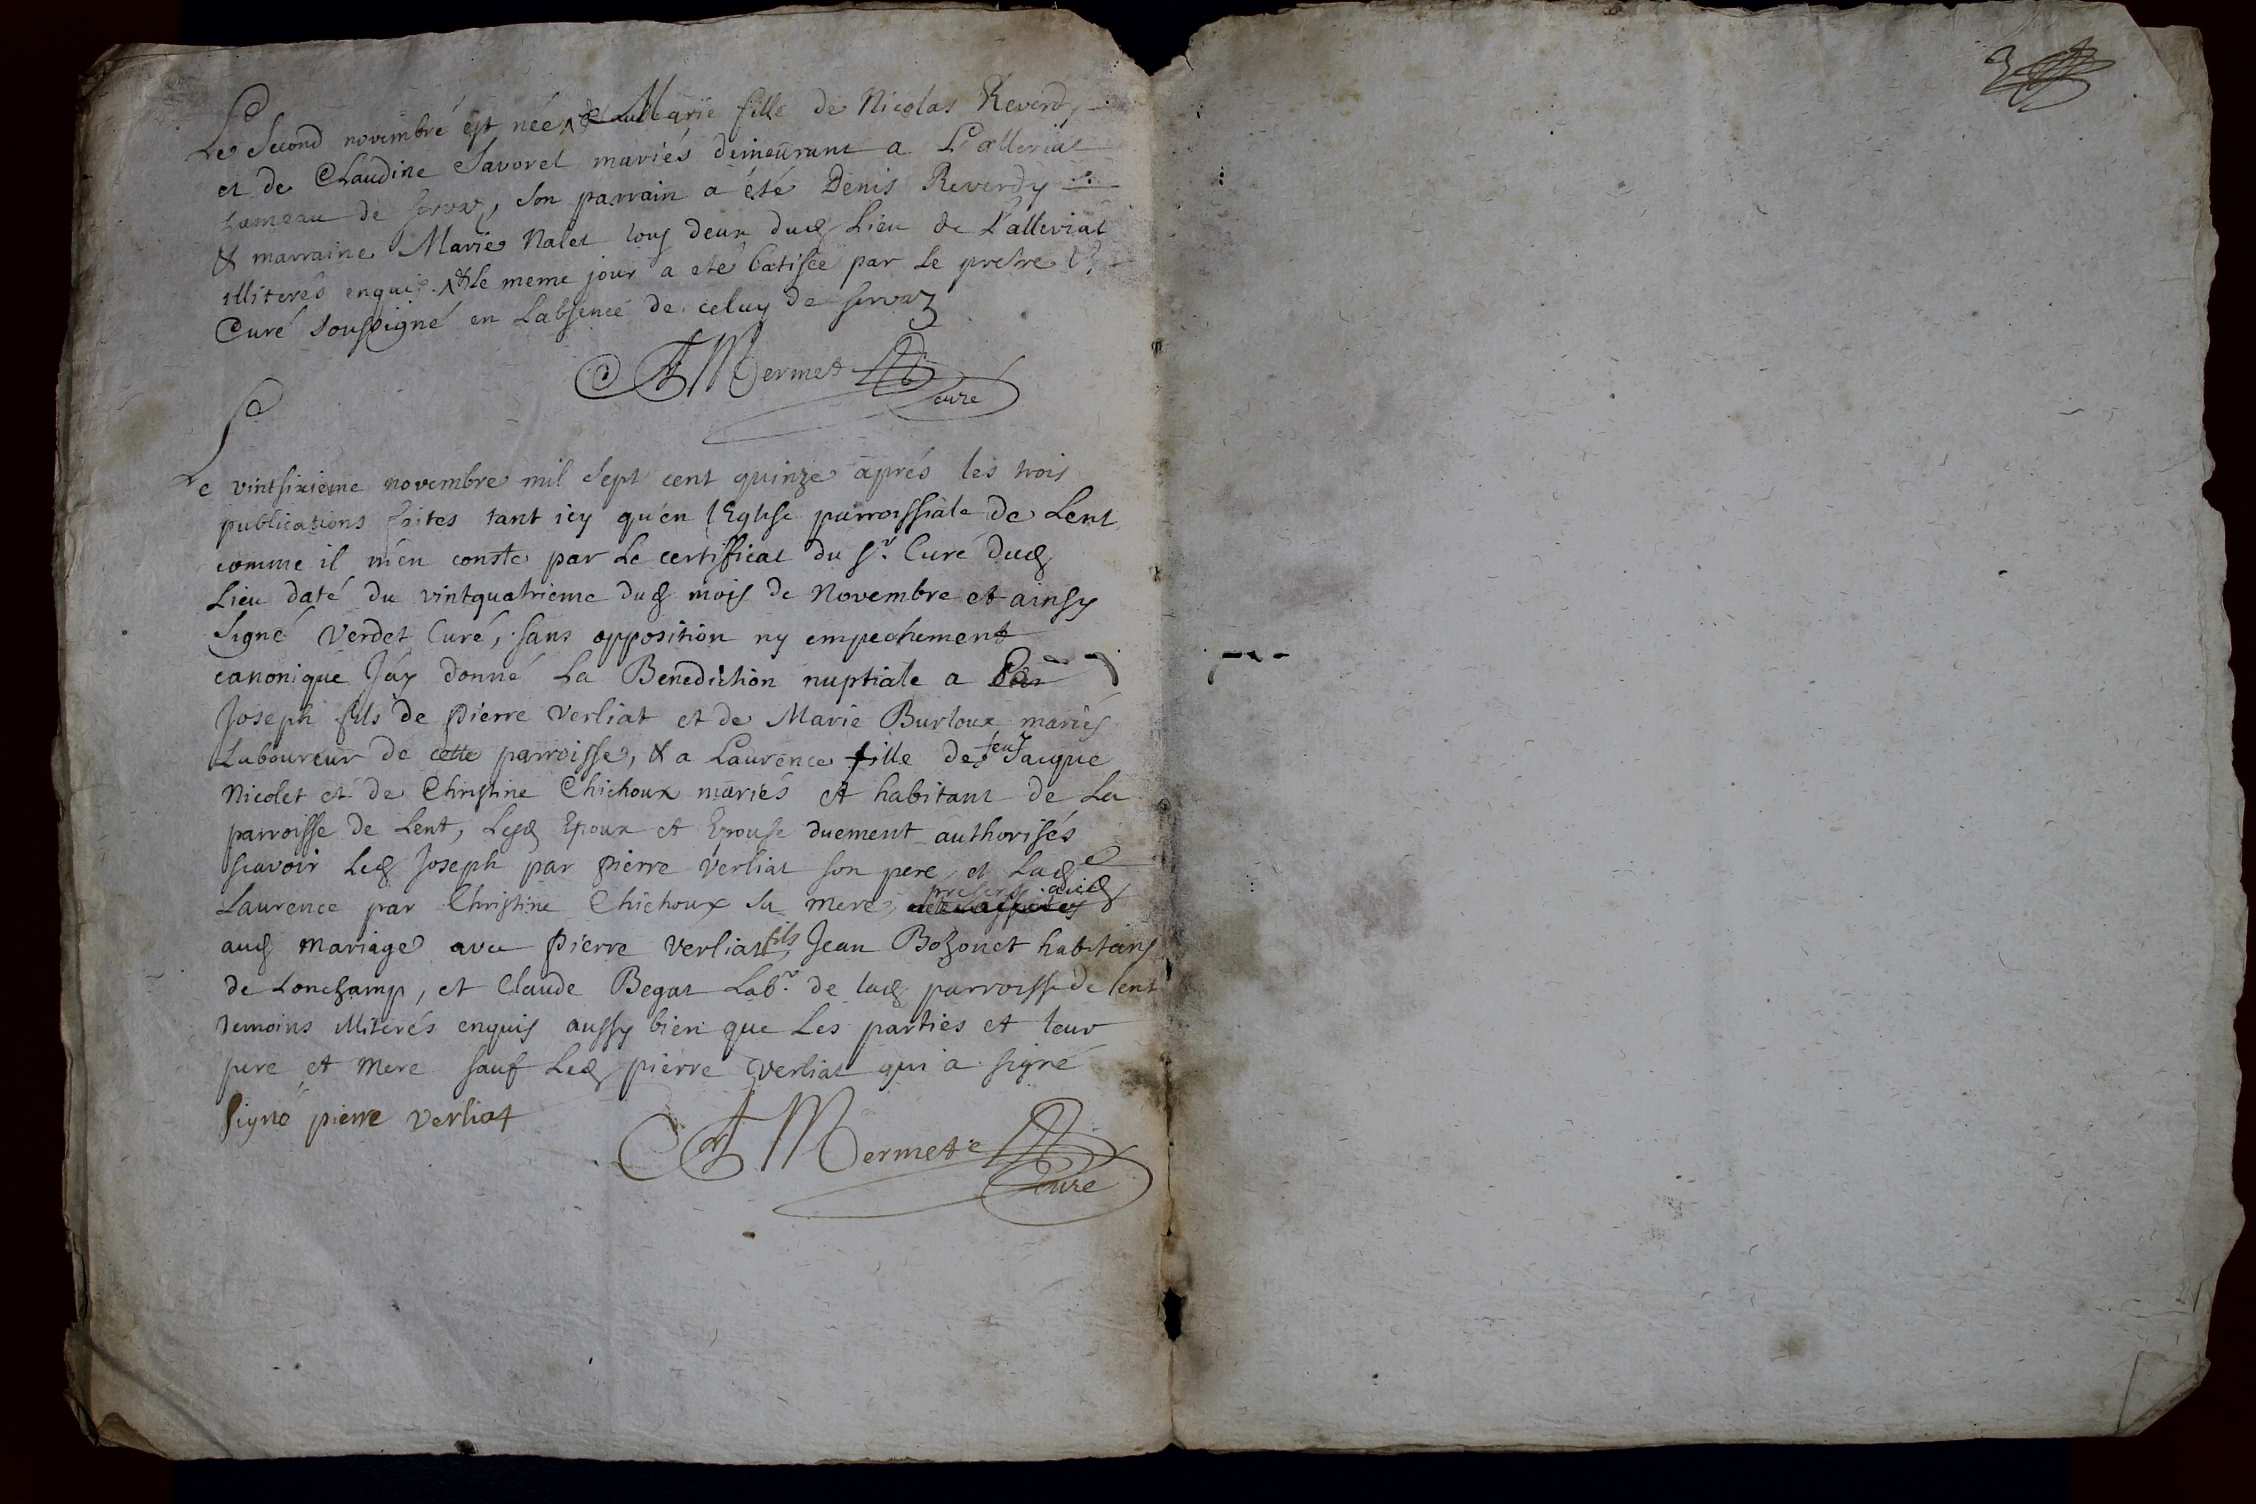 Le Second novembre est née Marie fille de Nicolas Reverdy
et de Claudine Savorel mariés demeurant a L'alleriat
hameau de servaz, son parrain a été Denis Reverdy
& marraine Marie Nalet tous deux dud Lieu de L'alleriat
illiterés enquis. & Le meme jour a eté batisée par Le prestre
Curé soussigné en Labsence de celuy de servaz
Mermet
curé
Le vintsixieme novembre mil Sept cent quinze aprés les trois
publications faites tant icy qu'en l'Eglise parroissiale de Lent
comme il m'en conste par Le certificat du Sr. Curé dud
Lieu daté du vintquatrieme dud mois de Novembre et ainsy
Signé Verdet Curé, sans opposition ny empechement
canonique J'ay donné La Benediction nuptiale a
Joseph fils de Pierre Verliat et de Marie Burloux mariés
Laboureur de cette parroisse, & a Laurence fille de feu Jacque
Nicolet et de Christine Chichoux mariés et habitant de La
parroisse de Lent, Lesd Epoux et Epouse duement authorisés
scavoir Led Joseph par pierre Verliat son pere, et Lad
Laurence par Christine Chichoux sa mere, presens
aud mariage avec Pierre Verliat fils, Jean Bozonet habitans
de Lonchamp, et Claude Begat Labr. de lad parroisse de lent
temoins illiterés enquis aussy bien que Les parties et leur
pere et mere sauf Led pierre Verliat qui a signé
Signé pierre Verliat
Mermet
curé